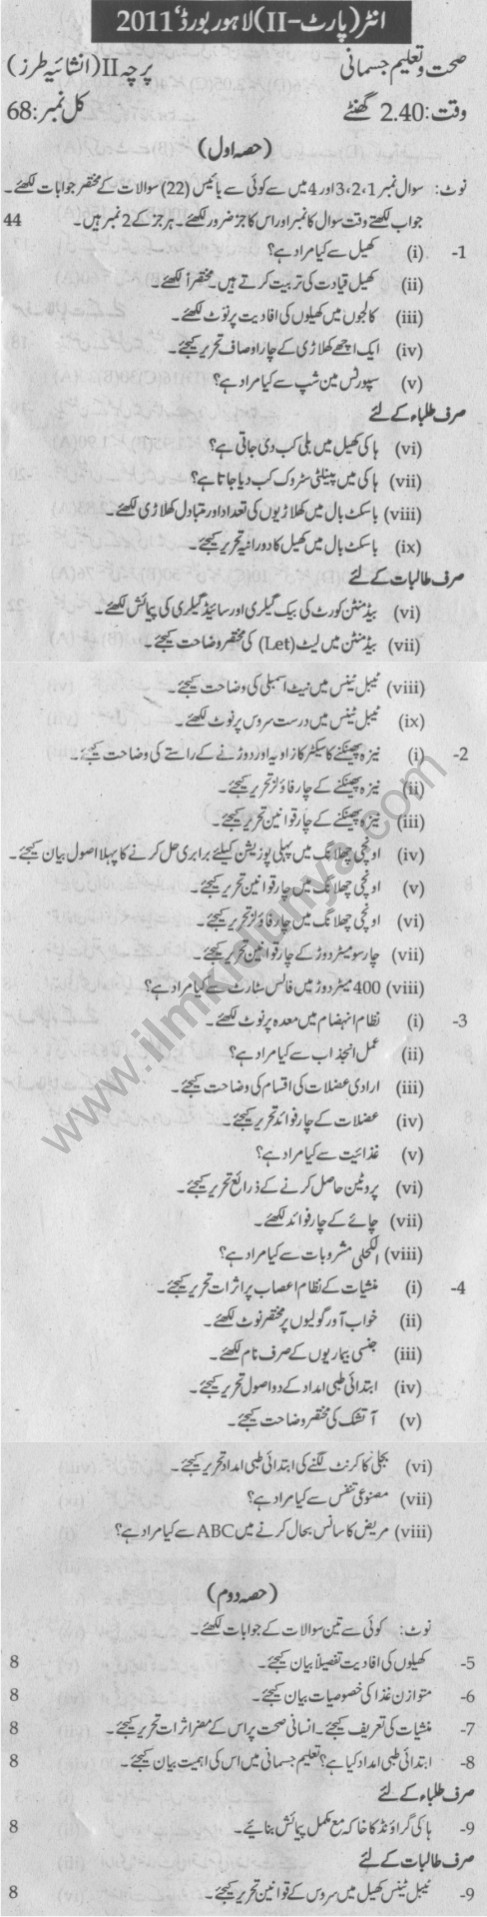 انٹر (پارٹ-II) لاہور بورڈ، 2011
صحت و تعلیم جسمانی پرچہ II (انشائیہ طرز)
وقت: 2.40 گھنٹے کل نمبر: 68
(حصہ اول)
نوٹ: سوال نمبر 1، 2، 3 اور 4 میں سے کوئی سے بائیس (22) سوالات کے مختصر جوابات لکھئے۔
جواب لکھتے وقت سوال کا نمبر اور اس کا جز ضرور لکھئے۔ ہر جز کے 2 نمبر ہیں۔ 44
1- (i) کھیل سے کیا مراد ہے؟
(ii) کھیل قیادت کی تربیت کرتے ہیں۔ مختصراً لکھئے۔
(iii) کالجوں میں کھیلوں کی افادیت پر نوٹ لکھئے۔
(iv) ایک اچھے کھلاڑی کے چار اوصاف تحریر کیجئے۔
(v) سپورٹس مین شپ سے کیا مراد ہے؟
صرف طلباء کے لئے
(vi) ہاکی کھیل میں بلی کب دی جاتی ہے؟
(vii) ہاکی میں پینلٹی سٹروک کب دیا جاتا ہے؟
(viii) باسکٹ بال میں کھلاڑیوں کی تعداد اور متبادل کھلاڑی لکھئے۔
(ix) باسکٹ بال میں کھیل کا دورانیہ تحریر کیجئے۔
صرف طالبات کے لئے
(vi) بیڈمنٹن کورٹ کی بیک گیلری اور سائیڈ گیلری کی پیمائش لکھئے۔
(vii) بیڈمنٹن میں لیٹ (Let) کی مختصر وضاحت کیجئے۔
(viii) ٹیبل ٹینس میں نیٹ اسمبلی کی وضاحت کیجئے۔
(ix) ٹیبل ٹینس میں درست سروس پر نوٹ لکھئے۔
2- (i) نیزہ پھینکنے کا سیکٹر کا زاویہ اور دوڑنے کے راستے کی وضاحت کیجئے۔
(ii) نیزہ پھینکنے کے چار فاؤلز تحریر کیجئے۔
(iii) نیزہ پھینکنے کے چار قوانین تحریر کیجئے۔
(iv) اونچی چھلانگ میں پہلی پوزیشن کیلئے برابری حل کرنے کا پہلا اصول بیان کیجئے۔
(v) اونچی چھلانگ میں چار قوانین تحریر کیجئے۔
(vi) اونچی چھلانگ میں چار فاؤلز تحریر کیجئے۔
(vii) چار سو میٹر دوڑ کے چار قوانین تحریر کیجئے۔
(viii) 400 میٹر دوڑ میں فالس سٹارٹ سے کیا مراد ہے؟
3- (i) نظام انہضام میں معدہ پر نوٹ لکھئے۔
(ii) عمل انجذاب سے کیا مراد ہے؟
(iii) ارادی عضلات کی اقسام کی وضاحت کیجئے۔
(iv) عضلات کے چار فوائد تحریر کیجئے۔
(v) غذائیت سے کیا مراد ہے؟
(vi) پروٹین حاصل کرنے کے ذرائع تحریر کیجئے۔
(vii) چائے کے چار فوائد لکھئے۔
(viii) الکحلی مشروبات سے کیا مراد ہے؟
4- (i) منشیات کے نظام اعصاب پر اثرات تحریر کیجئے۔
(ii) خواب آور گولیوں پر مختصر نوٹ لکھئے۔
(iii) جنسی بیماریوں کے صرف نام لکھئے۔
(iv) ابتدائی طبی امداد کے دو اصول تحریر کیجئے۔
(v) آتشک کی مختصر وضاحت کیجئے۔
(vi) بجلی کا کرنٹ لگنے کی ابتدائی طبی امداد تحریر کیجئے۔
(vii) مصنوعی تنفس سے کیا مراد ہے؟
(viii) مریض کا سانس بحال کرنے میں ABC سے کیا مراد ہے؟
(حصہ دوم)
نوٹ: کوئی سے تین سوالات کے جوابات لکھئے۔
5- کھیلوں کی افادیت تفصیلاً بیان کیجئے۔ 8
6- متوازن غذا کی خصوصیات بیان کیجئے۔ 8
7- منشیات کی تعریف کیجئے۔ انسانی صحت پر اس کے مضر اثرات تحریر کیجئے۔ 8
8- ابتدائی طبی امداد کیا ہے؟ تعلیم جسمانی میں اس کی اہمیت بیان کیجئے۔ 8
صرف طلباء کے لئے
9- ہاکی گراؤنڈ کا خاکہ مع مکمل پیمائش بنائیے۔ 8
صرف طالبات کے لئے
9- ٹیبل ٹینس کھیل میں سروس کے قوانین تحریر کیجئے۔ 8
www.ilmkidunya.com